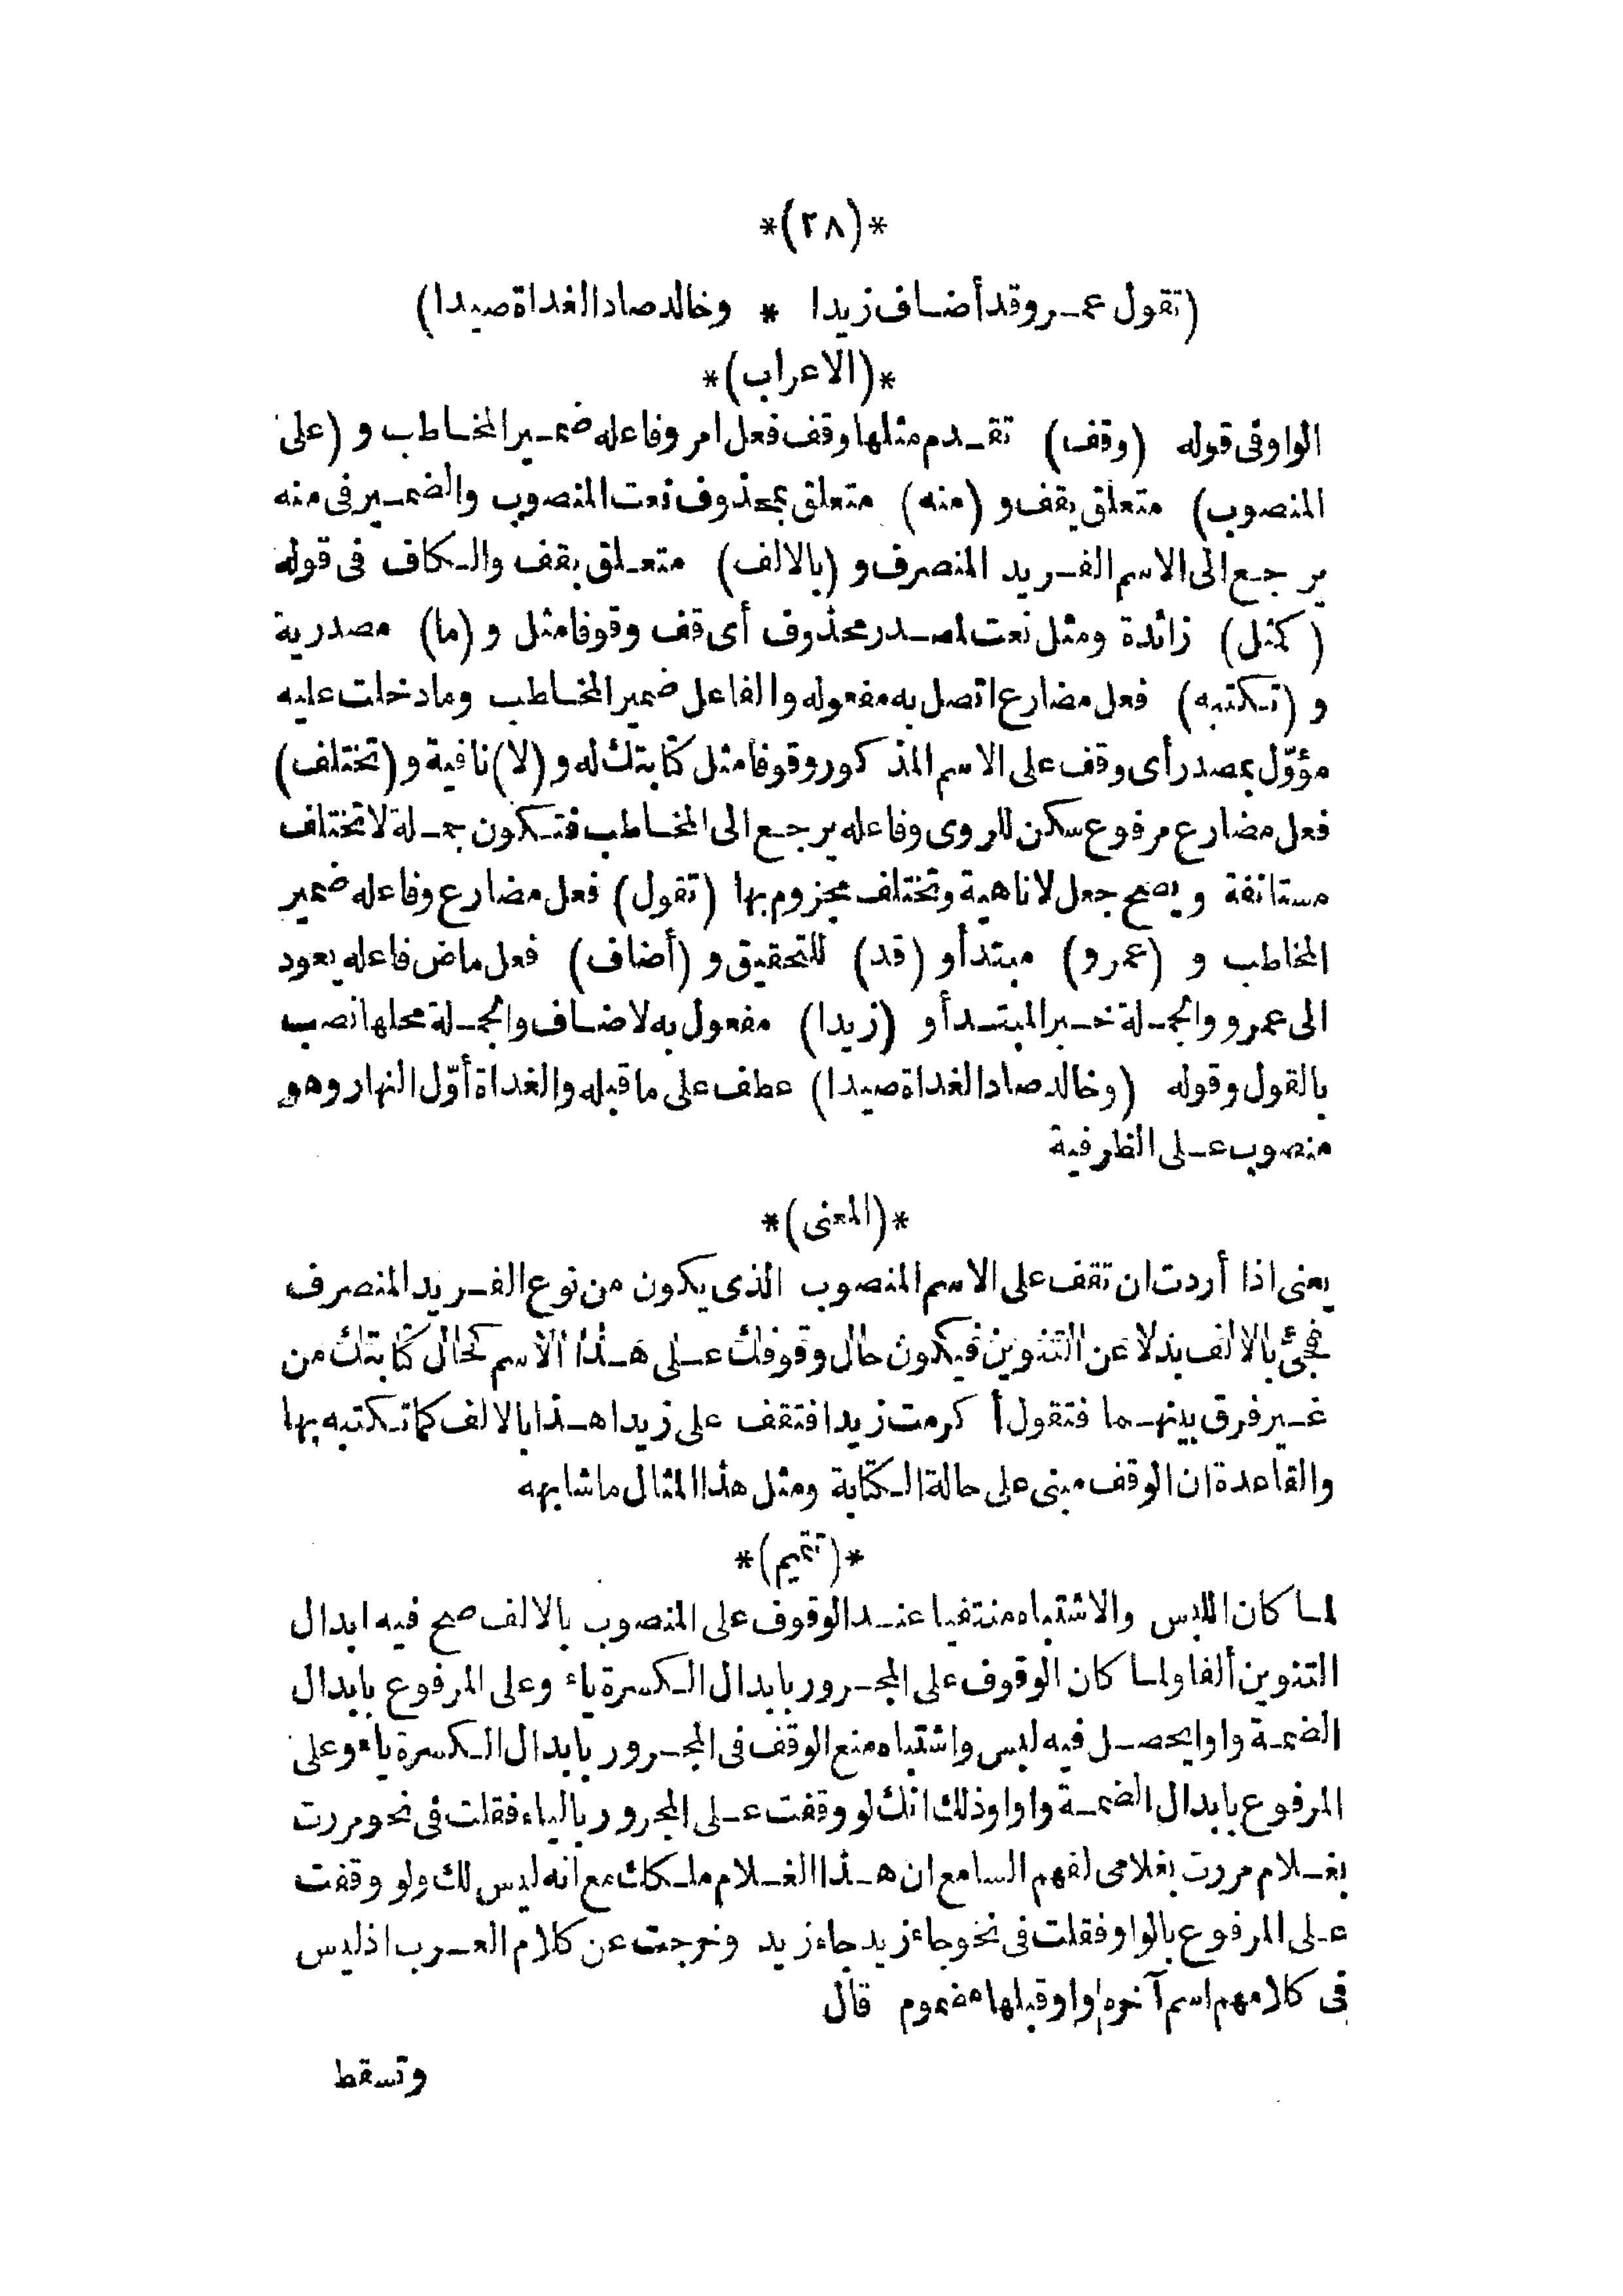 *(٢٨)*
(تقول عمرو قد أضاف زيدا * وخالد صاد الغداة صيدا)
*(الاعراب)*
الواو فى قوله (وقف) تقدم مثلها وقف فعل امر وفاعله ضمير المخاطب و (على
المنصوب) متعلق بقف و (منه) متعلق بمحذوف نعت المنصوب والضمير فى منه
يرجع الى الاسم الفريد المنصرف و (بالالف) متعلق بقف والكاف فى قوله
(كمثل) زائدة ومثل نعت لمصدر محذوف أى قف وقوفا مثل و (ما) مصدرية
و (تكتبه) فعل مضارع اتصل به مفعوله والفاعل ضمير المخاطب وما دخلت عليه
مؤوّل بمصدر أى وقف على الاسم المذكور وقوفا مثل كتابتك له و (لا) نافية و (تختلف)
فعل مضارع مرفوع سكن للروى وفاعله يرجع الى المخاطب فتكون جملة لا تختلف
مستانفة ويصح جعل لا ناهية وتختلف مجزوم بها (تقول) فعل مضارع وفاعله ضمير
المخاطب و (عمرو) مبتدأ و (قد) للتحقيق و (أضاف) فعل ماض فاعله يعود
الى عمرو والجملة خبر المبتدأ و (زيدا) مفعول به لاضاف والجملة محلها نصب
بالقول وقوله (وخالد صاد الغداة صيدا) عطف على ما قبله والغداة أوّل النهار وهو
منصوب على الظرفية
*(المعنى)*
يعنى اذا أردت ان تقف على الاسم المنصوب الذى يكون من نوع الفريد المنصرف
فجئ بالالف بدلا عن التنوين فيكون حال وقوفك على هذا الاسم كحال كتابتك من
غير فرق بينهما فتقول أكرمت زيدا فتقف على زيدا هذا بالالف كما تكتبه بها
والقاعدة ان الوقف مبنى على حالة الكتابة ومثل هذا المثال ما شابهه
*(تتميم)*
لما كان اللبس والاشتباه منتفيا عند الوقوف على المنصوب بالالف صح فيه ابدال
التنوين ألفا ولما كان الوقوف على المجرور بابدال الكسرة ياء وعلى المرفوع بابدال
الضمة واوا يحصل فيه لبس واشتباه منع الوقف فى المجرور بابدال الكسرة ياء وعلى
المرفوع بابدال الضمة واوا وذلك انك لو وقفت على المجرور بالياء فقلت فى نحو مررت
بغلام مررت بغلامى لفهم السامع ان هذا الغلام ملكك مع انه ليس لك ولو وقفت
على المرفوع بالواو فقلت فى نحو جاء زيد جاء زيد وخرجت عن كلام العرب اذ ليس
فى كلامهم اسم آخره واو قبلها مضموم قال
وتسقط